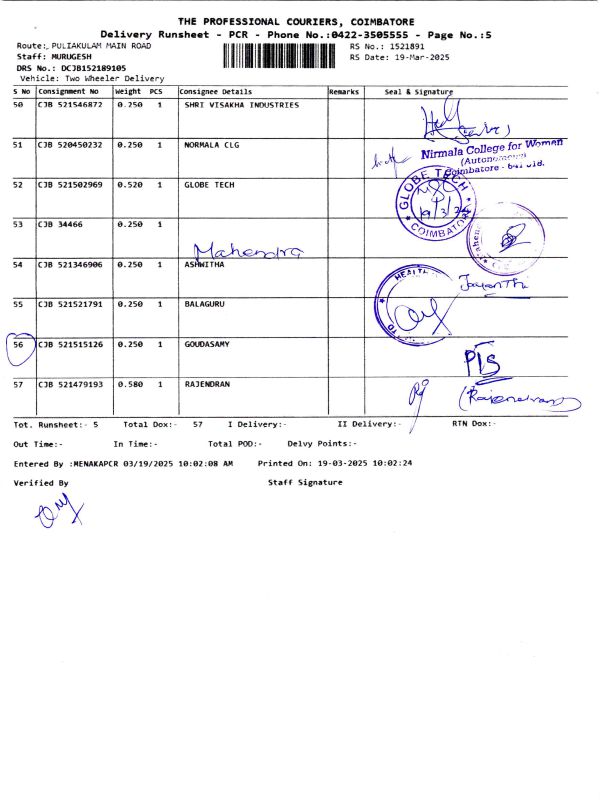 THE PROFESSIONAL COURIERS, COIMBATORE
Delivery Runsheet - PCR - Phone No.:0422-3505555 - Page No.:5
Route:. PULIAKULAM MAIN ROAD RS No.: 1521891
Staff: MURUGESH RS Date: 19-Mar-2025
DRS No.: DCJB152189105
Vehicle: Two Wheeler Delivery
S No Consignment No Weight PCS Consignee Details Remarks Seal & Signature
50 CJB 521546872 0.250 1 SHRI VISAKHA INDUSTRIES
51 CJB 520450232 0.250 1 NORMALA CLG
Nirmala College for Women
(Autonomous)
Coimbatore - 641 018.
52 CJB 521502969 0.520 1 GLOBE TECH
GLOBE TECH
COIMBATORE
53 CJB 34466 0.250 1
Mahendra
54 CJB 521346906 0.250 1 ASHWITHA
Jayanthi
55 CJB 521521791 0.250 1 BALAGURU
56 CJB 521515126 0.250 1 GOUDASAMY
57 CJB 521479193 0.580 1 RAJENDRAN
(Rajendran)
Tot. Runsheet:- 5 Total Dox:- 57 I Delivery:- II Delivery:- RTN Dox:-
Out Time:- In Time:- Total POD:- Delvy Points:-
Entered By :MENAKAPCR 03/19/2025 10:02:08 AM Printed On: 19-03-2025 10:02:24
Verified By Staff Signature